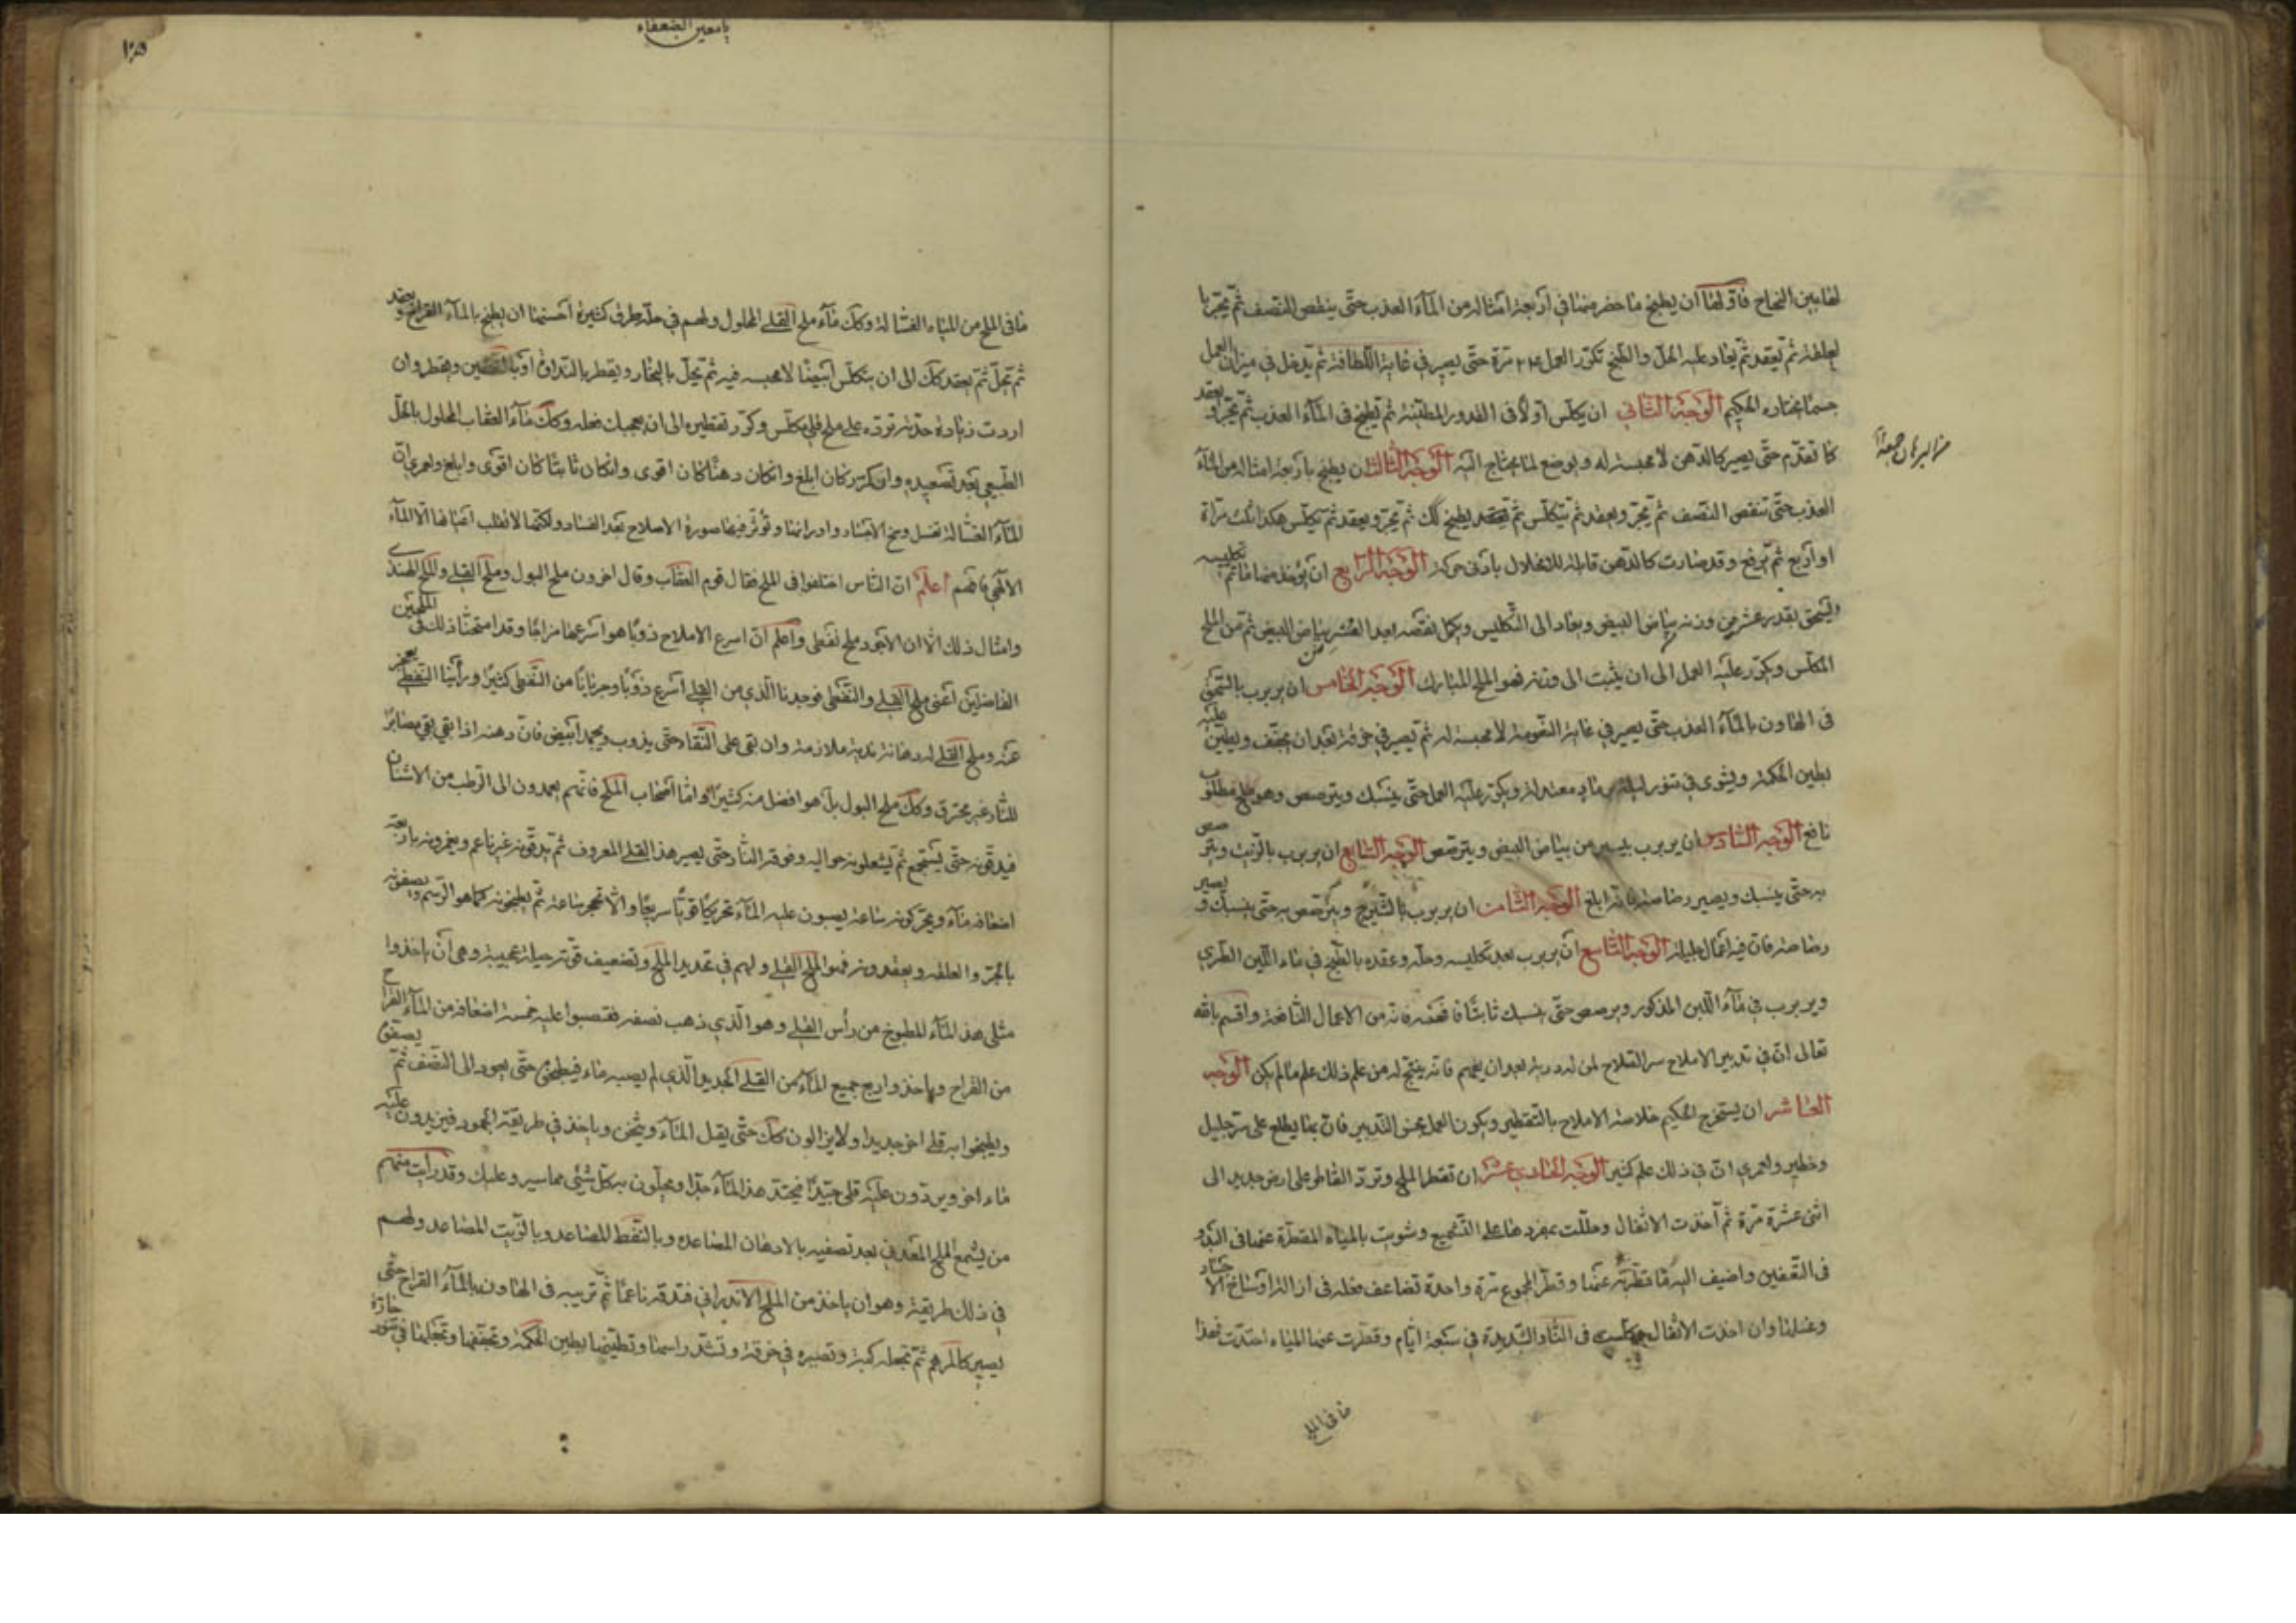 لها بين النجاح فاولها ان يطبخ ما حضر منها في اربعة امثاله من المآء العذب حتى ينقص النصف ثم يجر با
لعلقة ثم يعقد ثم يعاد عليه الحل والطبخ تكرر العمل ٢٤ مرة حتى يصير في غاية اللطافة ثم يدخل في ميزان العمل
جسما يختاره الحكيم الوجه الثاني ان يكلس اولا في القدور المطينة ثم يطبخ في المآء العذب ثم يجر ويعقد
كما تقدم حتى يصير كالدهن لا مجسة له ويوضع لما يحتاج اليه الوجه الثالث ان يطبخ باربعة امثاله من المآء
العذب حتى تنقص النصف ثم يجر ويعقد ثم يكلس ثم يعقد يطبخ كك ثم يجر ويعقد ثم يكلس هكذا ثلث مراة
او اربع ثم يرفع وقد صارت كالدهن قابلة للانحلال بادنى حركة الوجه الرابع ان يؤخذ منها ما تم تكليسه
وليسحق بقدر عشر من وزنه بياض البيض ويعاد الى التكليس ويكمل نقصه ابدا العشر من بياض البيض ثم من الملح
المكلس ويكرر عليه العمل الى ان يثبت الى وزنه فهو الملح المبارك الوجه الخامس ان يربرب بالسحق
في الهاون بالمآء العذب حتى يصير في غاية النعومة لا مجسة له ثم يصير في خرقة بعد ان يجفف ويطين عليه
بطين الحكمة ويشوى في تنور ليلة بنار معتدلة ويكرر عليه العمل حتى ينسبك ويترصص وهو ملح مطلوب
نافع الوجه السادس ان يربرب بيسير من بياض البيض ويترصص الوجه السابع ان يربرب بالزيت ويترصص
به حتى ينسبك ويصير رصاصة فانه ابلغ الوجه الثامن ان يربرب بالشيرج ويترصص به حتى ينسبك ويصير
رصاصة فان فيه اعمال جليلة الوجه التاسع ان يربرب بعد تكليسه وحله وعقده بالطبخ في ماء اللبن الطري
ويربرب في مآء اللبن المذكور ويرصص حتى ينسبك ثابتا فانه من الاعمال النافعة واقسم بالله
تعالى ان في تدبير الاملاح سر الفلاح لمن له دربة بعد ان يفهم فانه ينتج له من علم ذلك علم ما لم يكن الوجه
العاشر ان يستخرج الحكيم خلاصة الاملاح بالتقطير ويكون العمل بحسن التدبير فان بما يطلع على سر جليل
وخطير ولعمري ان في ذلك علم كثير الوجه الحادي عشر ان تقطر الملح وترد القاطر على ارض جديد الى
اثنى عشرة مرة ثم اخذت الاثفال وحللت بمفردها على التشميع وشويت بالمياه المقطرة عنها في الندو
في التعفين واضيف اليه ما قطرته عنها وقطر المجموع مرة واحدة تضاعف فعله في ازالة اوساخ الاجساد
وغسلها وان اخذت الاثفال وكلست في النار الشديدة في سبعة ايام وقطرت عنها المياه احتدت فهذا
ما في الملح
يا معين الضعفاء
ما في الملح من المياه الغسالة وكك مآء ملح القلي المحلول ولهم في حله طرق كثيرة احسنها ان يطبخ بالمآء القراح ويعقد
ثم يحل ثم يعقد كك الى ان يتكلس ابيضا لا مجسة فيه ثم يحل بالبخار ويقطر بالنداوة او بالتعفين ويقطر وان
اردت زيادة حدته تردّه على ملح قلي مكلس وكرر تقطيره الى ان يعجبك فعله وكك مآء العقاب المحلول بالحل
الطبيعي بعد تصعيده وان تكرر كان ابلغ وانكان دهنا كان اقوى وانكان ثابتا كان اقوى وابلغ ولعمري ان
المآء الغسالة تغسل وسخ الاجساد وادرانها وتؤثر فيها صورة الاصلاح بعد الفساد ولكنها لا تقلب اعيانها الا المآء
الالهي فافهم اعلم ان الناس اختلفوا في الملح فقال قوم العقاب وقال اخرون ملح البول وملح القلي والملح الهندي
وامثال ذلك الا ان الاجود ملح نفطي واعلم ان اسرع الاملاح ذوبا هو اسرعها مزاجا وقد امتحنا ذلك في الملحين
الفاضلين اعني ملح القلي والنفطي فوجدنا الذي من القلي اسرع ذوبا وجريانا من النفطي كثيرا ورأينا النفطي يعجز
عنه وملح القلي له دهانة ندية ملازمة وان بقى على النقاء حتى يذوب ويجمد ابيض فان دهنه اذا بقي بقي مصابرا
للنار غير محترق وكك ملح البول بل هو افضل منه كثيرا واما اصحاب الملح فانهم يعمدون الى الرطب من الاشنان
فيدقونه حتى يستجمع ثم يشعلون حواليه وفوقه النار حتى يصير هذا القلي المعروف ثم يدقونه غير ناعم ويغمرونه باربعة
اضعافه مآء ويحركونه ساعة يصبون عليه المآء تحريكا قويا سريعا والا تحجر ساعة ثم يطبخونه كما هو الرسم ويصفونه
بالجر والعلقة ويعقدونه فهو الملح القلي ولهم في تحديد الملح وتضعيف قوته حيلة عجيبة وهي ان ياخذوا
مثلي هذا المآء المطبوخ من رأس القلي وهو الذي ذهب نصفه فتصبوا عليه خمسة اضعافه من المآء القراح
من القراح وياخذوا ربع جميع المآء من القلي الجديد الذي لم يصبه ماء فيطبخ حتى يعود الى النصف ثم يصفى
ويطبخوا به قلي اخر جديدا ولايزالون كك حتى يقل المآء ويثخن وياخذ في طريقة الجمود فيزيدون عليه
ماء اخر ويردون عليه قلي جيدا فيحتد هذا المآء جدا ويحلون به كل شيئ مما يسير وعليك وقد رأيت منهم
من يشمع الملح المعدني بعد تصفيه بالادهان المصاعدة وبالنفط المصاعد وبالزيت المصاعد ولهم
في ذلك طريقة وهو ان ياخذ من الملح الاندراني فتدقه ناعما ثم تربيه في الهاون بالمآء القراح حتى
يصير كالمرهم ثم تجعله كبة وتصيره في خرقة وتشد راسها وتطينها بطين الحكمة وتجففها وتجعلها في تنور حارة